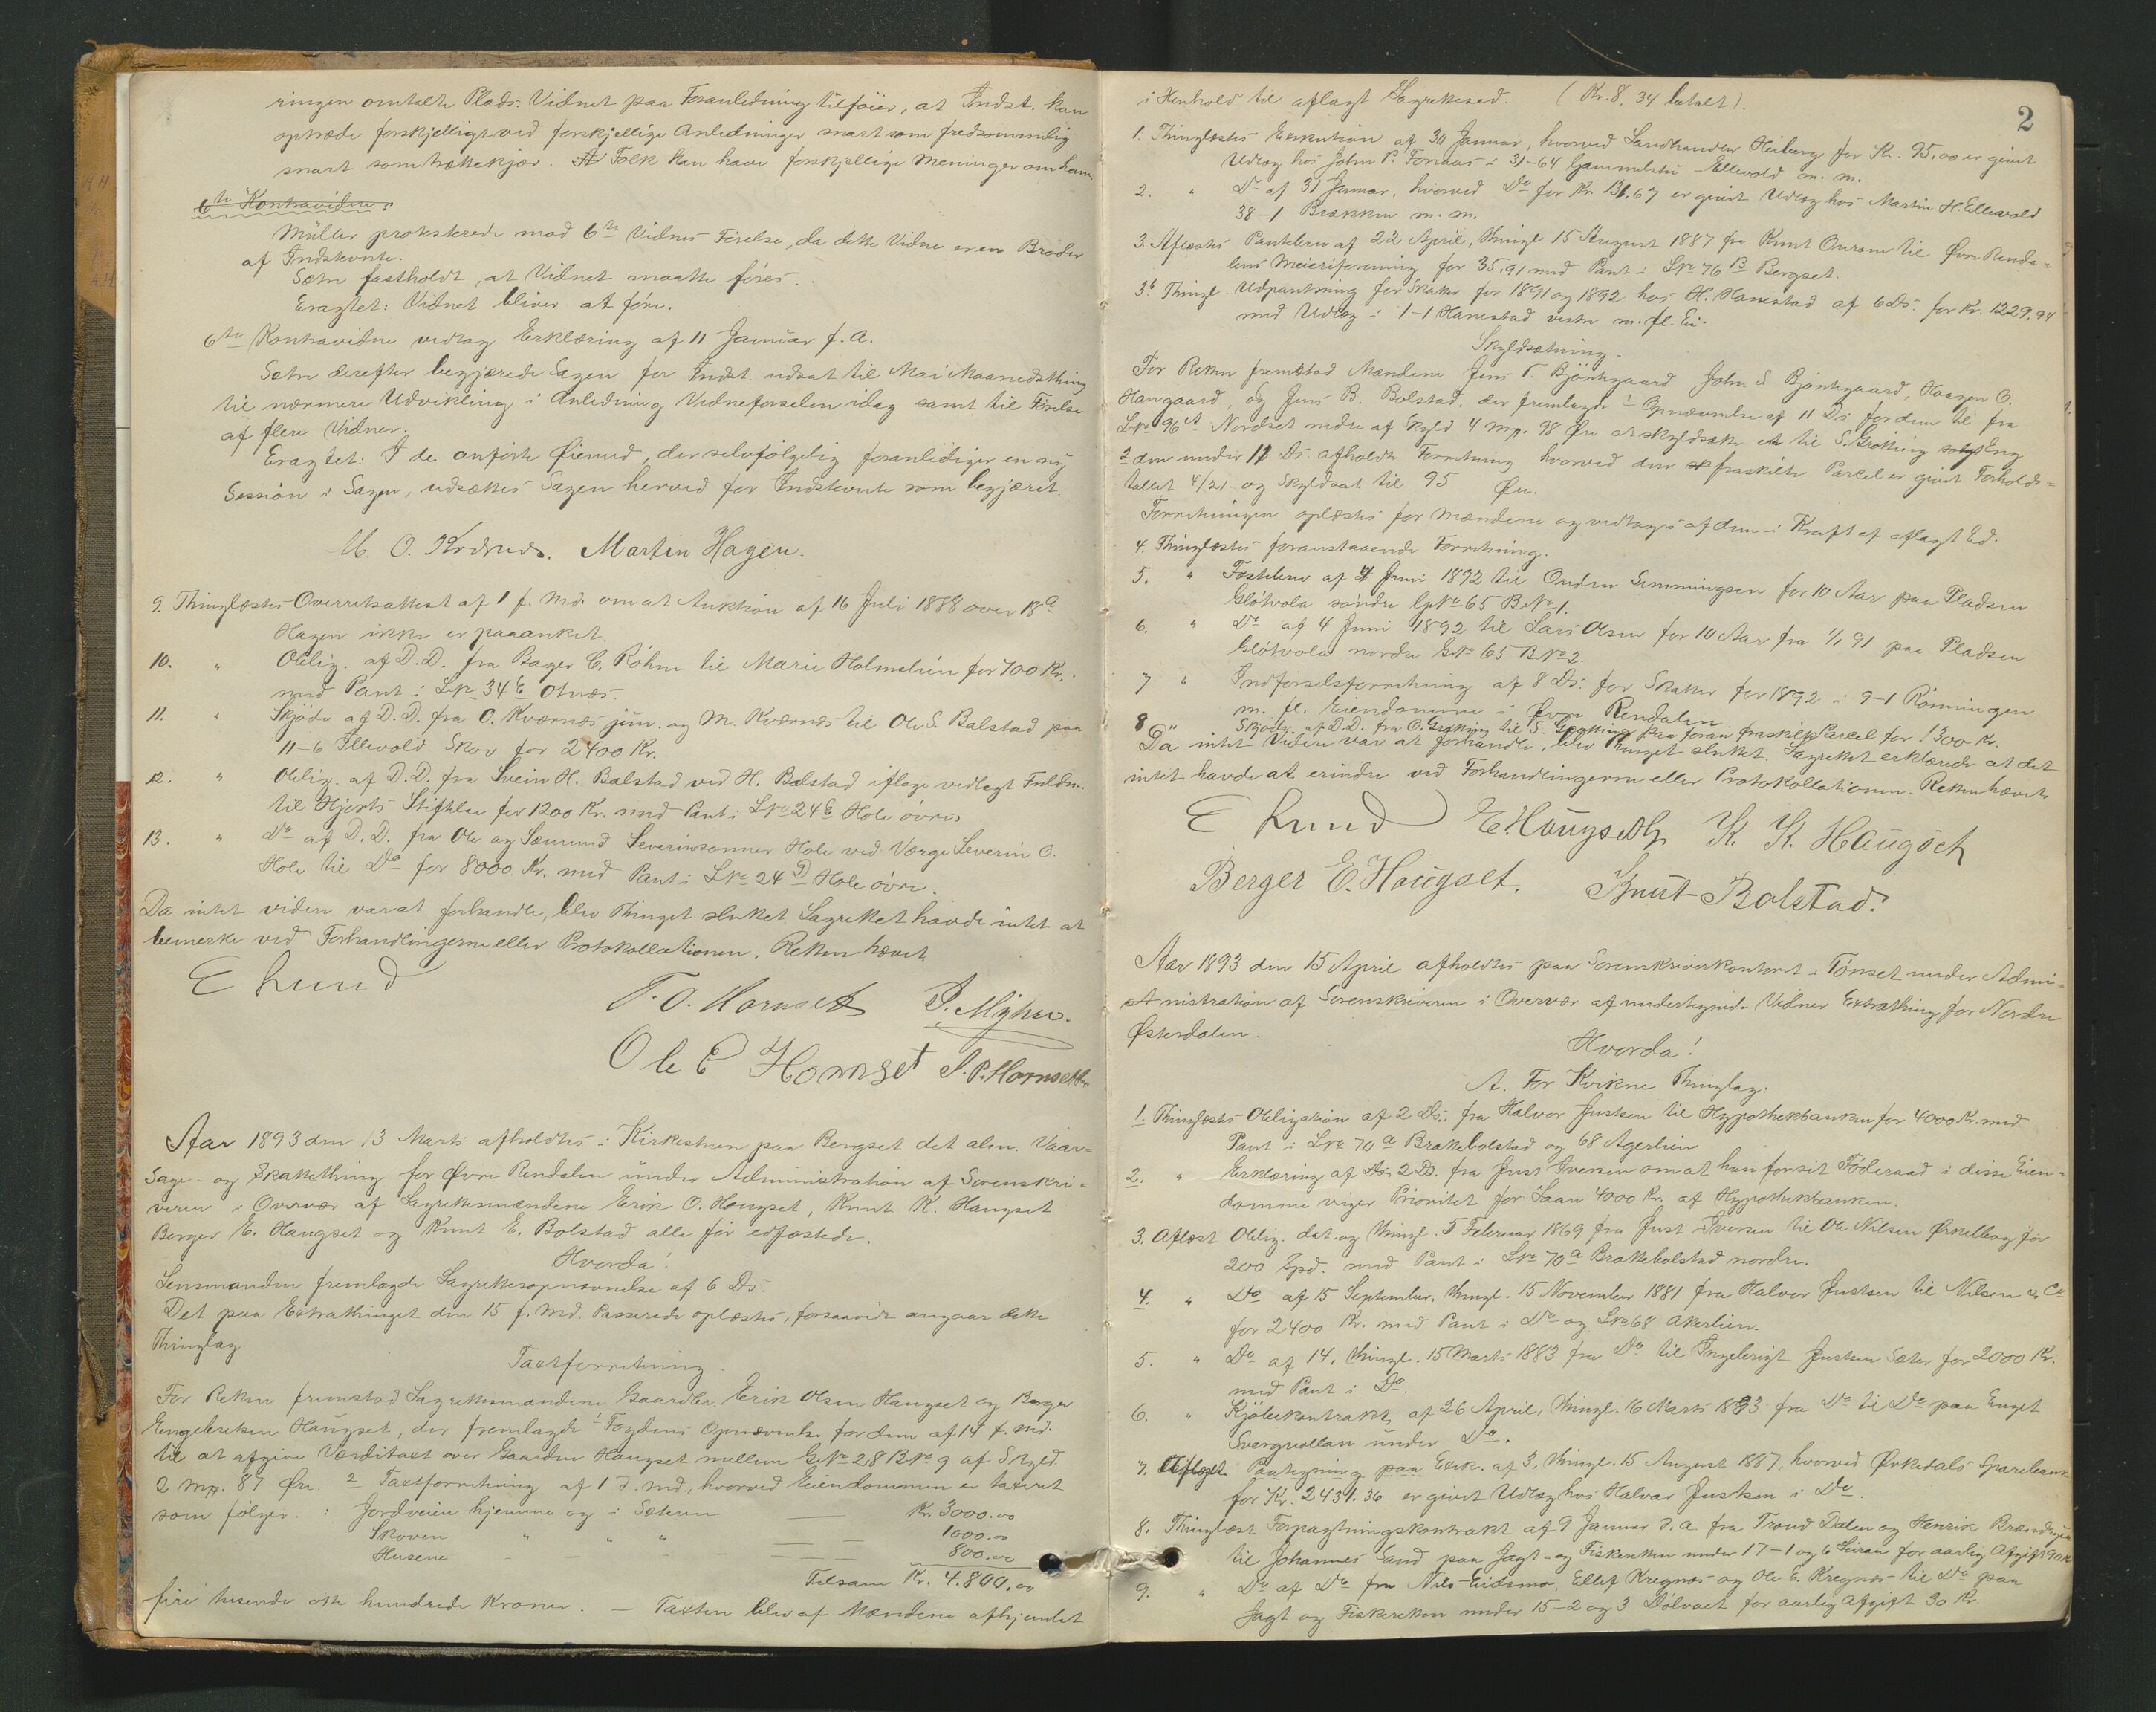 ringen omtalte Plads. Vidnet paa Foranledning tilføier, at Indst. kan
optræde forskjelligt ved forskjellige Anledninger snart som fredsommelig
snart som trættekjær. At Folk kan have forskjellige Meninger om ham.
6te Kontravidne:
Müller protesterede mod 6te Vidnes Førelse, da dette Vidne er en Broder
af Indstevnte.
Sætre fastholdt, at Vidnet maatte føres.
Eragtet: Vidnet bliver at føre.
6te Kontravidne vedtog Erklæring af 11 Januar f. A.
Sætre derefter begjærede Sagen for Indst. udsat til Mai Maanedsthing
til nærmere Udvikling i Anledning Vidneførselen idag samt til Førelse
af flere Vidner.
Eragtet: I de anførte Øiemed, der selvfølgelig foranlediger en ny
Session i Sagen, udsættes Sagen herved for Indstevnte som begjæret.
M. O. Martin Hagen.
9. Thinglæstes Overretsattest af 1 f. Md. om at Auktion af 16 Juli 1888 over 18a
Hagen ikke er paaanket.
10. " Oblig. af D.D. fra Bager C. Röhne til Marie Holmslien for 700 Kr.
med Pant i LNo 34b Otnes.
11. " Skjøde af D.D. fra O. Kværnes jun. og M. Kværnes til Ole S. Balstad paa
11-6 Ellevold Skov for 2400 Kr.
12. " Oblig. af D.D. fra Svein H. Balstad ved H. Balstad ifløge vedlagt Fuldm.
til Hjorts Stiftelse for 1200 Kr. med Pant i LNo 24b Hole øvre
13. " Do af D.D. fra Ole og Sæmund Severinsønner Hole ved Værge Severin O.
Hole til Do for 8000 Kr. med Pant i LNo 24D Hole øvre.
Da intet videre var at forhandle, blev Thinget sluttet. Lagrettet havde intet at
bemerke ved Forhandlingerne eller Protokollationen. Retten hævet.
E Lund
T. O. Hornset P. Myhre.
Ole E Hornset J. P. Hornseth
Aar 1893 den 13 Marts afholdtes i Kirkestuen paa Bergset det alm. Vaar-
Sage- og Skattething for Øvre Rendalen under Administration af Sorenskri-
veren i Overvær af Lagrettesmændene Erik O. Haugset, Knut K. Haugset
Berger E. Haugset og Knut E. Bolstad alle før edfæstede.
Hvorda!
Lensmanden fremlagde Lagrettesopnævnelse af 6 Ds.
Det paa Extrathinget den 15 f. Md. Passerede oplæstes, forsaavidt angaar dette
Thinglag.
Taxtforretning.
For Retten fremstod Lagrettesmændene Gaardbr. Erik Olsen Haugset og Berger
Engebretsen Haugset, der fremlagde 1 Fogdens Opnævnelse for dem af 14 f. Md.
til at afgive Værditaxt over Gaarden Haugset mellem GNo 28 BNo 9 af Skyld
2 Mrk. 87 Øre. 2 Taxtforretning af 1 d. Md., hvorved Eiendommen er taxeret
som følger: Jordveien hjemme og i Sæteren Kr. 3000.00
Skoven " " " 1000.00
Husene 800.00
Tilsam Kr. 4.800.00
fire tusende otte hundrede Kroner. — Taxten blev af Mændene afhjemlet
2
i Henhold til aflagt Lagrettesed. (Kr. 8,34 betalt).
1. Thinglæstes Exekution af 30 Januar, hvorved Landhandler Heiberg for Kr. 95,00 er givet
Udlæg hos John P. Fonaas i 31-64 Gammelstu-Ellevold m. m.
2. " Do af 31 Januar, hvorved Do for Kr. 131.67 er givet Udlæg hos Martin H. Ellevold
38-1 Brækken m. m.
3. Aflæstes Pantebrev af 22 April, thingl. 15 August 1887 fra Knut Onsum til Øvre Renda-
lens Meieriforening for 35,91 med Pant i LNo 76B Bergset.
3b Thingl. Udpantning for Skatter for 1891 og 1892 hos H. Hanestad af 6 Ds. for Kr. 1229,94
med Udlæg i 1-1 Hanestad vestre m. fl. Ei.
Skyldsætning.
For Retten fremstod Mændene Jens T. Bjøntegaard John S Bjøntegaard, Haagen O.
Haugaard, og Jens B. Bolstad, der fremlagde 1 Opnævnelse af 11 Ds. for dem til fra
LNo 96a Nordset nedre af Skyld 4 Mrk. 98 Øre at skyldsætte et til S. Grøtting solgt Eng
2 den under 11 Ds afholdte Forretning hvorved den fraskilte Parcel er givet Forholds-
tallet 4/21 og Skyldsat til 95 Øre.
Forretningen oplæstes for Mændene og vedtoges af dem i Kraft af aflagt Ed.
4. Thinglæstes foranstaaende Forretning.
5. " Fæstebrev af 4 Juni 1892 til Onden Simmingsen for 10 Aar paa Pladsen
Gløtvola søndre GNo 65 BNo 1.
6. " Do af 4 Juni 1892 til Lars Olsen for 10 Aar fra 1/1 91 paa Pladsen
Gløtvola nordre GNo 65 BNo 2.
7 " Indførselsforretning af 8 Ds. for Skatter for 1892 i 9-1 Rønningen
m. fl. Eiendomme i Øvre Rendalen
8 " Skjøde af D.D. fra O. Grøtting til S. Grøtting paa foran fraskilt Parcel for 1300 Kr.
Da intet Videre var at forhandle, blev Thinget sluttet. Lagrettet erklærede at det
intet havde at erindre ved Forhandlingerne eller Protokollationen. Retten hævet.
E Lund E Haugseth K. K. Haugset
Berger E. Haugset. Knut Bolstad.
Aar 1893 den 15 April afholdtes paa Sorenskriverkontoret i Tønset under Admi-
nistration af Sorenskriveren i Overvær af undertegnede Vidner Extrathing for Nordre
Østerdalen.
Hvorda!
A. For Kvikne Thinglag:
1. Thinglæstes Obligation af 2 Ds. fra Halvor Justsen til Hypothekbanken for 4000 Kr. med
Pant i LNo 70a Brattebolstad og 68 Agerlien
2. " Erklæring af Ds. 2 Ds. fra Just Iversen om at han for sit Føderaad i disse Eien-
domme viger Prioritet for Laan 4000 Kr. af Hypothekbanken.
3. Aflæst Oblig. dat. og thingl. 5 Februar 1869 fra Just Iversen til Ole Nilsen for
200 Spd. med Pant i LNo 70a Brattebolstad nordre.
4. " Do af 15 September, thingl. 15 November 1881 fra Halvor Justsen til Nilsen & Co
for 2400 Kr. med Pant i Do og LNo 68 Akerlien.
5. " Do af 14, thingl. 15 Marts 1883 fra Do til Ingebrigt Justsen Sæter for 2000 Kr.
med Pant i Do.
6. " Kjøbekontrakt af 26 April, thingl. 16 Marts 1883 fra Do til Do paa Enget
under Do.
7. Aflæst Paategning paa Exek. af 3, thingl. 15 August 1887, hvorved Ørkedals Sparebank
for Kr. 2431.36 er givet Udlæg hos Halvor Justsen i Do.
8. Thinglæst Forpagtningskontrakt af 9 Januar d. A. fra Trond Dalen og Henrik
til Johannes Sand paa Jagt- og Fiskeretten under 17-1 og 6 for aarlig Afgift 90 Kr
9. " Do af Do fra Nils Eidsmo, Ellef Kregnes og Ole E. Kregnes til Do paa
Jagt og Fiskeretten under 15-2 og 3 for aarlig Afgift 30 Kr